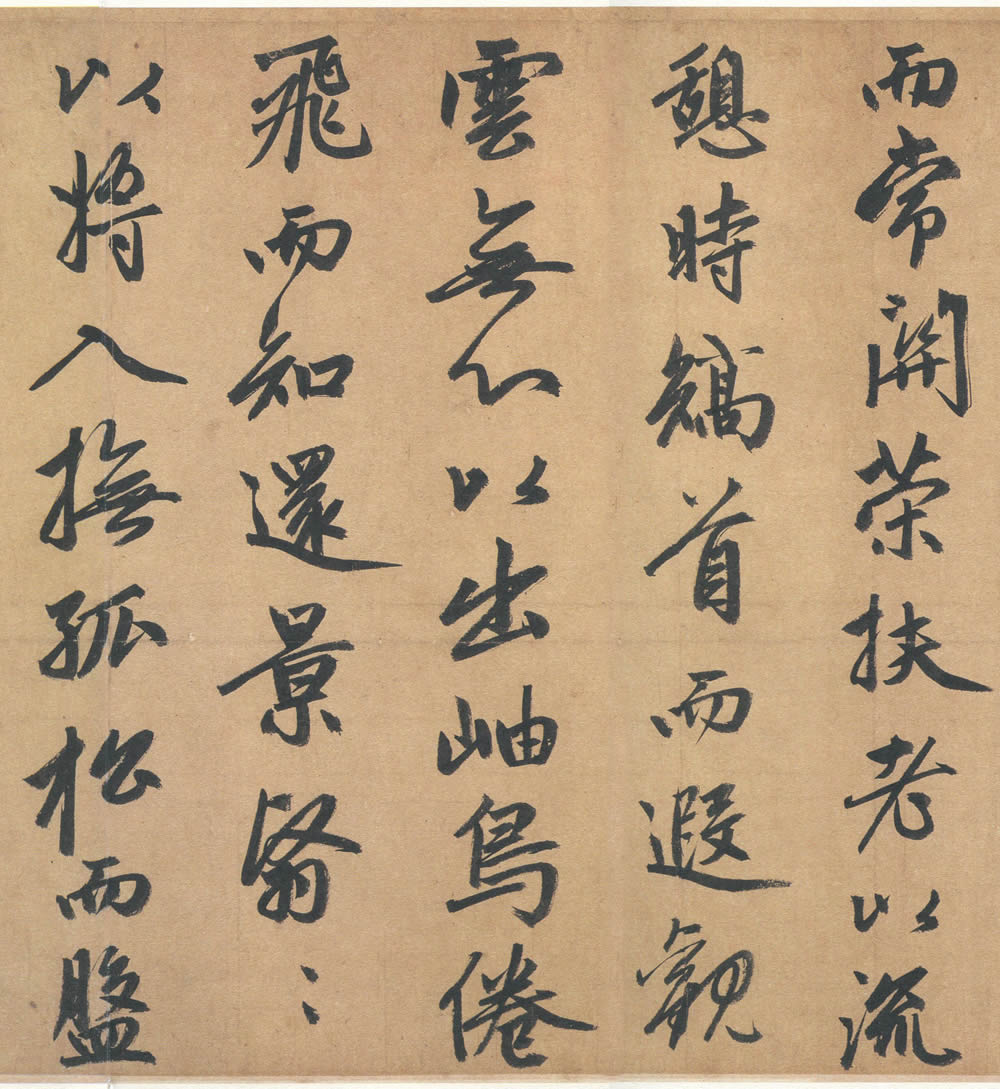 而常關策扶老以流
憩時矯首而遐觀
雲無心以出岫鳥倦
飛而知還景翳〻
以將入撫孤松而盤